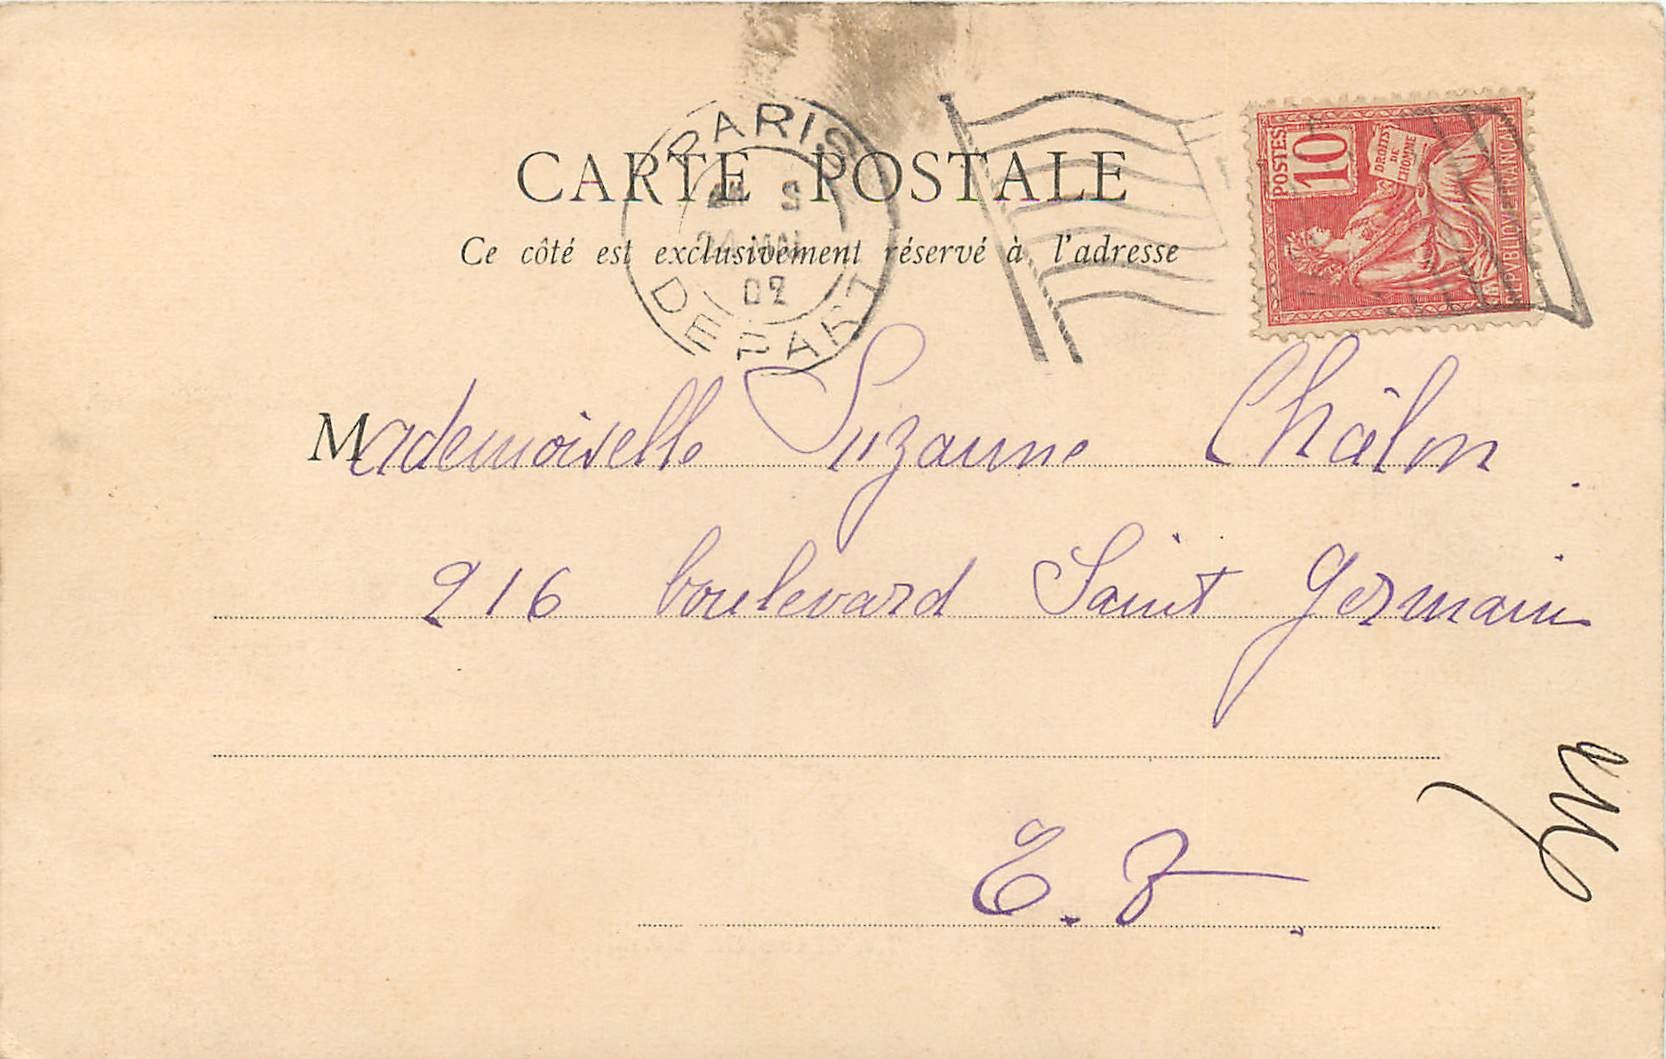 PARIS
DEPART
02
CARTE POSTALE
Ce côté est exclusivement réservé à l'adresse
POSTES
10
DROITS DE L'HOMME
REPVBLIQVE FRANÇAISE
Mademoiselle Suzanne Châlon
216 boulevard Saint Germain
E.